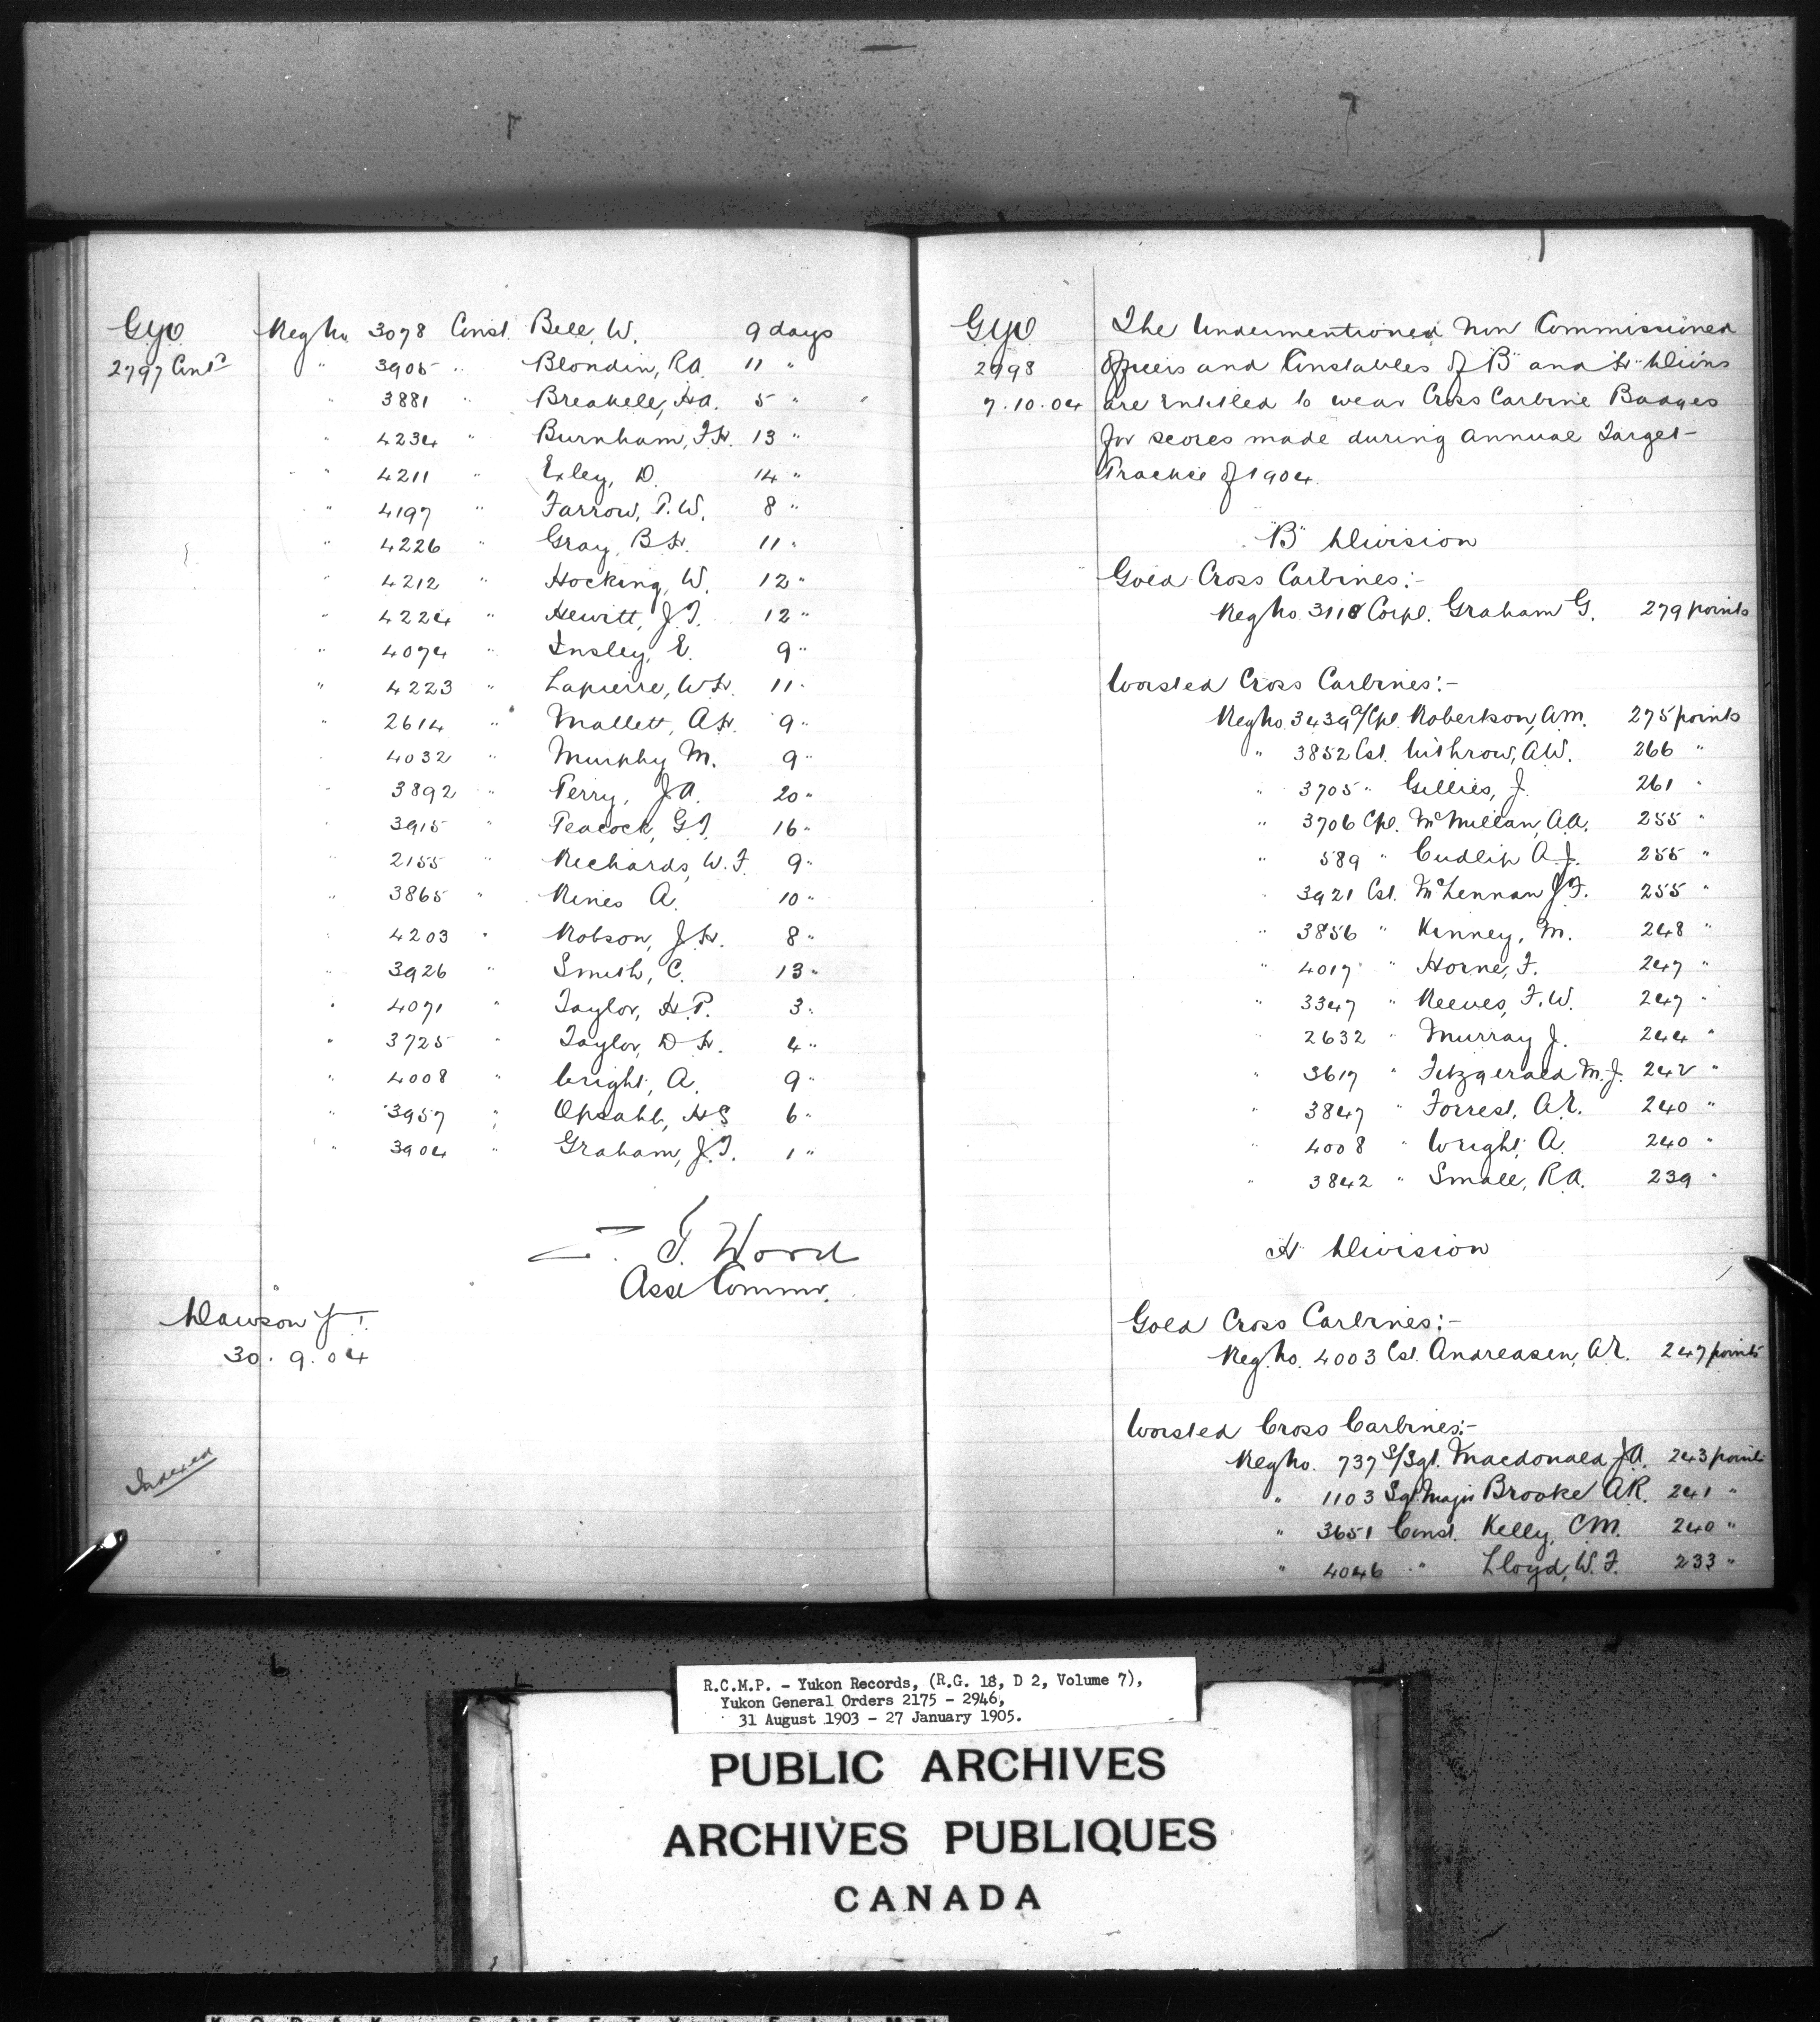 G.Y.O Reg No. 3078 Const. Bell, W. 9 days
2797 Contd " 3905 " Blondin, R.A. 11 "
" 3881 " Breakell, H.A. 5 "
" 4234 " Burnham, F.H. 13 "
" 4211 " Exley, D. 14 "
" 4197 " Farrow, P.W. 8 "
" 4226 " Gray, B.H. 11 "
" 4212 " Hocking, W. 12 "
" 4224 " Hewitt, J.T. 12 "
" 4074 " Insley, E. 9 "
" 4223 " Lapierre, W.H. 11 "
" 2614 " Mallett, A.H. 9 "
" 4032 " Murphy M. 9 "
" 3892 " Perry, J.A. 20 "
" 3915 " Peacock, G.T. 16 "
" 2155 " Richards, W.F. 9 "
" 3865 " Rines A. 10 "
" 4203 " Robson, J.H. 8 "
" 3926 " Smith, C. 13 "
" 4071 " Taylor, H.P. 3 "
" 3725 " Taylor, D.H. 4 "
" 4008 " Wright, A. 9 "
" 3957 " Opsahl, H.S 6 "
" 3904 " Graham, J.T. 1 "
Z. T. Wood
Asst Commr.
Dawson Y.T.
30.9.04
Indexed
G.Y.O The Undermentioned Non Commissioned
2798 Officers and Constables of "B" and "H" Divions
7.10.04 are Entitled to wear Cross Carbine Badges
for scores made during Annual Target
Practice of 1904.
"B" Division
Gold Cross Carbines:-
Reg No. 3118 Corpl. Graham G. 279 points
Worsted Cross Carbines:-
Reg No. 3439 a/Cpl. Robertson, A.M. 275 points
" 3852 Cst. Withrow, A.W. 266 "
" 3705 " Gillies, J. 261 "
" 3706 Cpl. McMillan, A.A. 255 "
" 589 " Cudlip A.J. 255 "
" 3921 Cst. McLennan J.F. 255 "
" 3856 " Kinney, M. 248 "
" 4017 " Horne, F. 247 "
" 3347 " Reeves, F.W. 247 "
" 2632 " Murray J. 244 "
" 3617 " Fitzgerald M.J. 242 "
" 3847 " Forrest, A.E. 240 "
" 4008 " Wright, A. 240 "
" 3842 " Small, R.A. 239 "
"H" Division
Gold Cross Carbines:-
Reg. No. 4003 Cst. Andreasen, A.E. 247 points
Worsted Cross Carbines:-
Reg No. 737 S/Sgt. Macdonald J.A. 243 points
" 1103 Sgt. Major Brooke A.R. 241 "
" 3651 Const. Kelly, C.M. 240 "
" 4046 " Lloyd, W.F. 233 "
R.C.M.P. - Yukon Records, (R.G. 18, D 2, Volume 7),
Yukon General Orders 2175 - 2946,
31 August 1903 - 27 January 1905.
PUBLIC ARCHIVES
ARCHIVES PUBLIQUES
CANADA